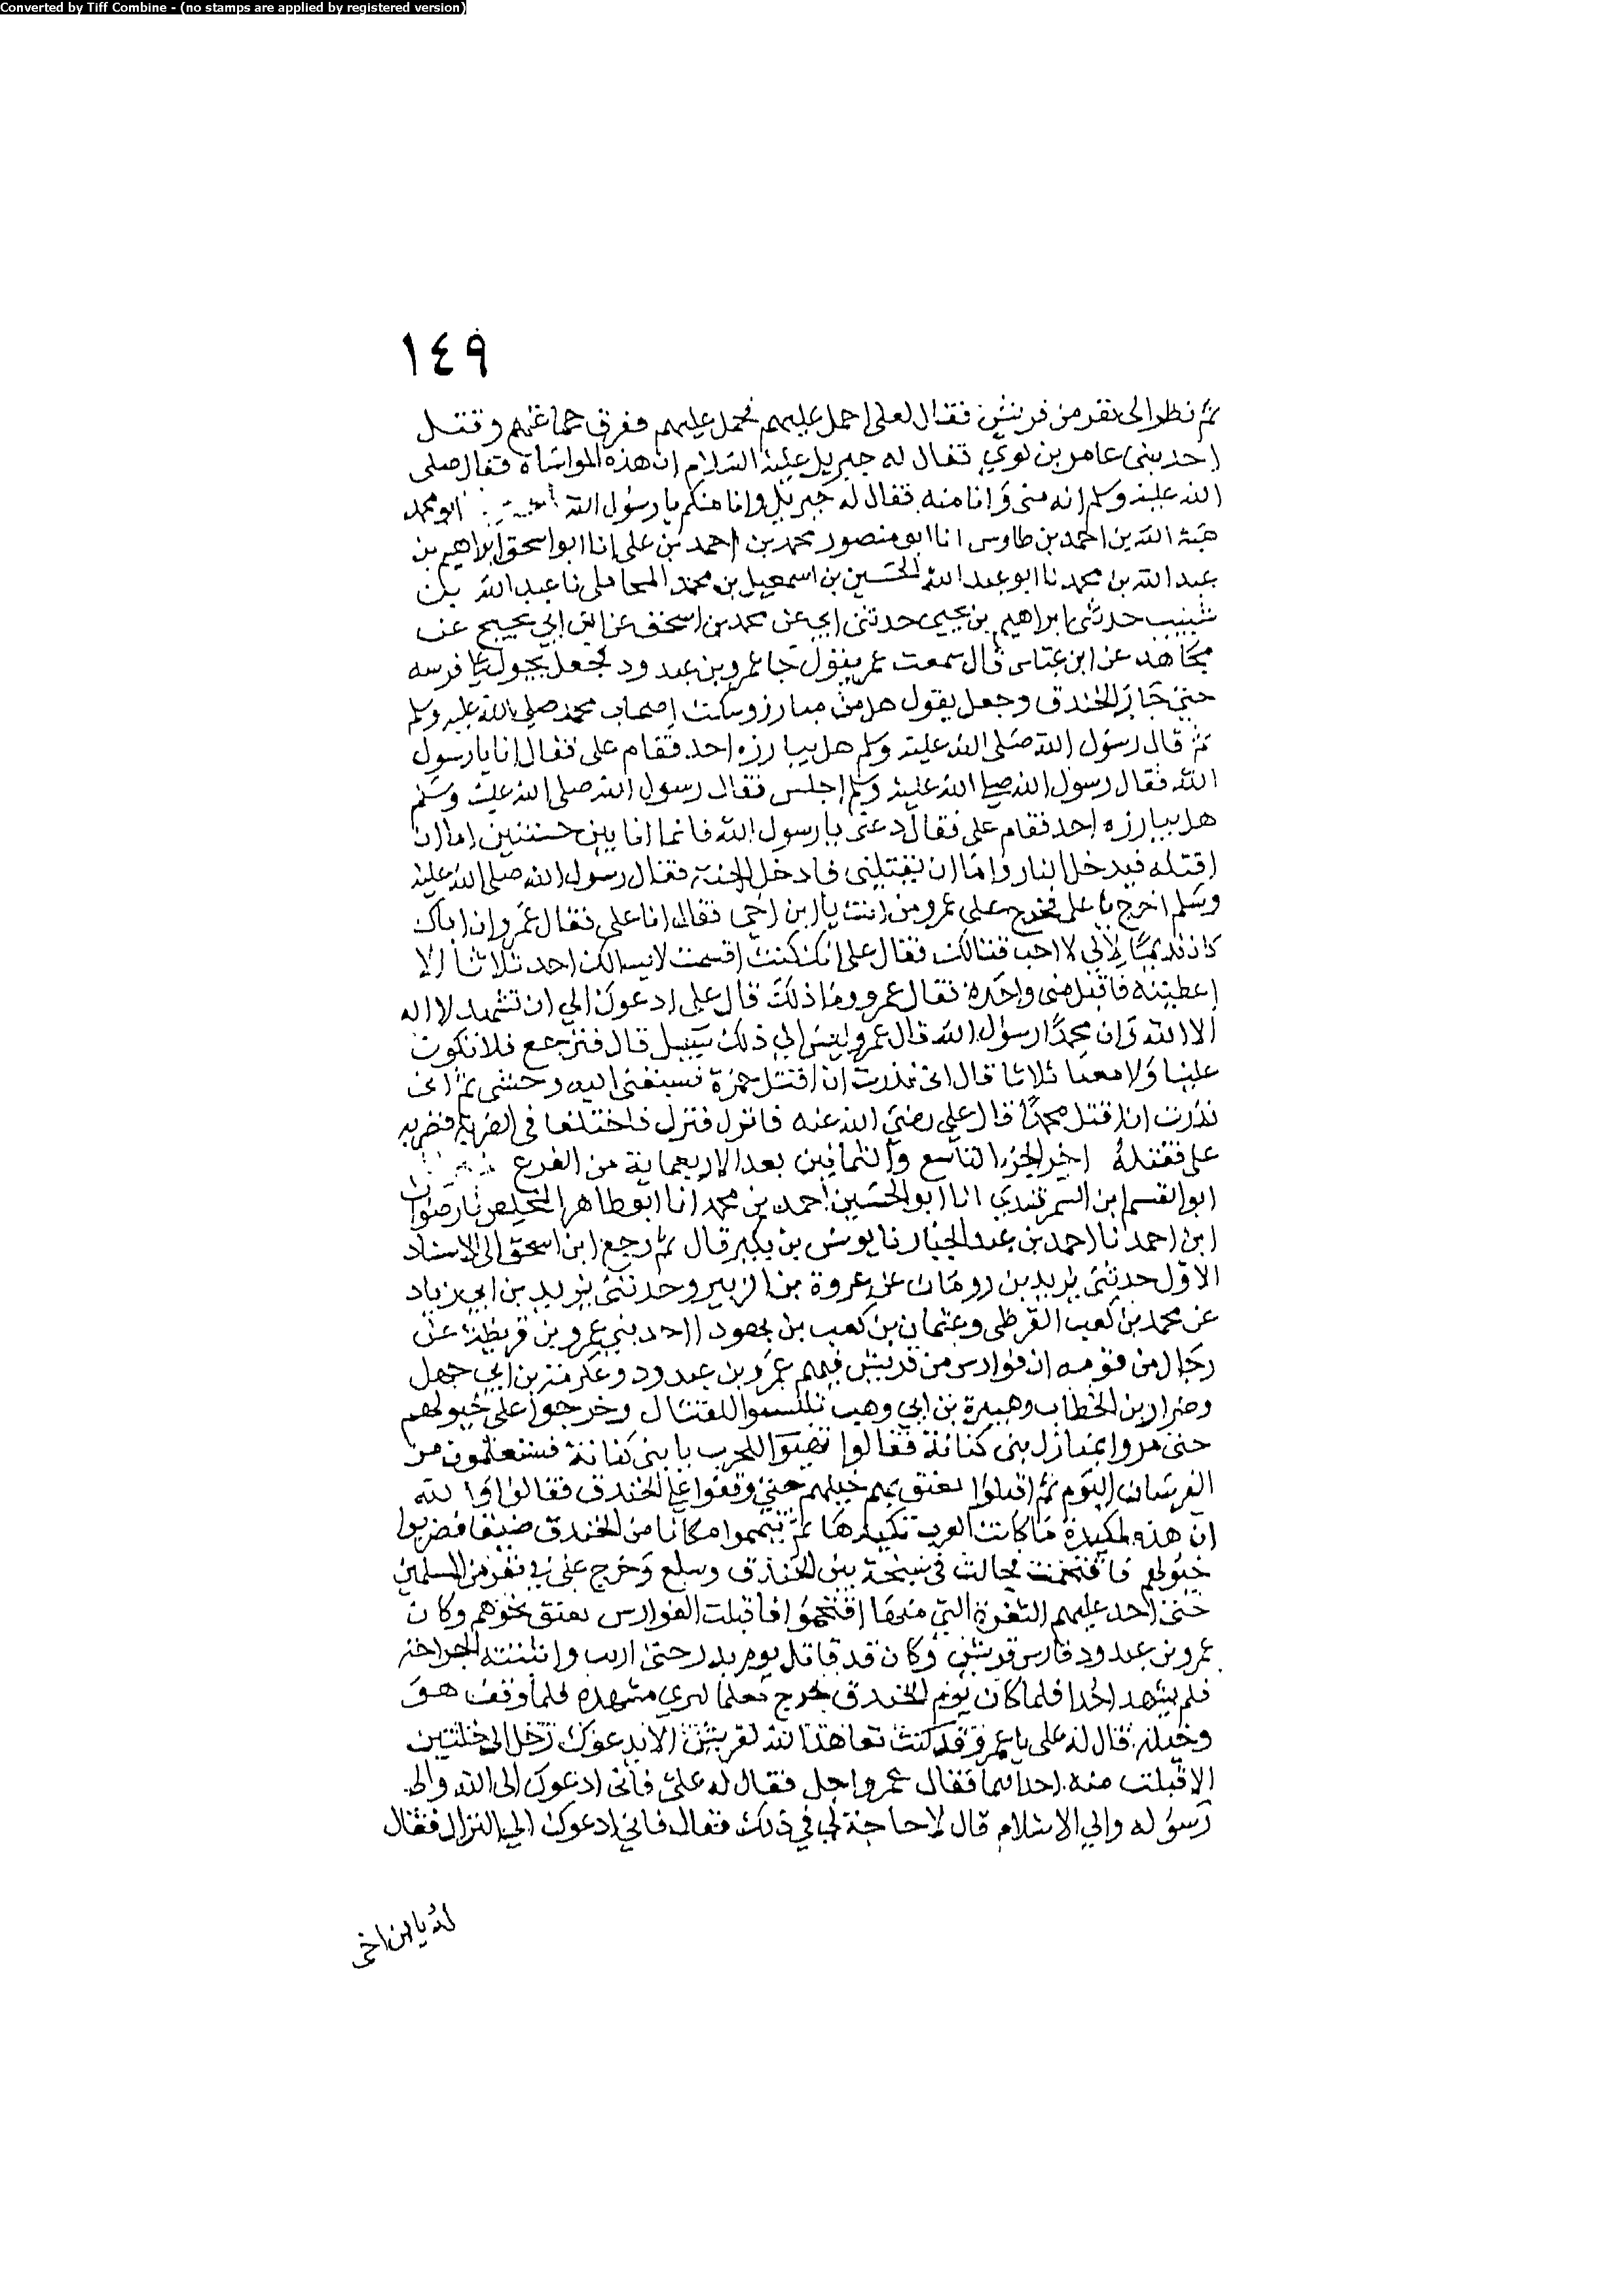 Converted by Tiff Combine - (no stamps are applied by registered version)
١٤٩
ثم نظر الى نفر من قريش فقال لعلي احمل عليهم فحمل عليهم ففرق جماعتهم وقتل
احد بني عامر بن لوي فقال له جبريل عليه السلام ان هذه المواساة فقال صلى
الله عليه وسلم انه مني وانا منه فقال له جبريل وانا منكم يا رسول الله ابو محمد
هبة الله بن احمد بن طاوس انا ابو منصور محمد بن احمد بن علي انا ابو اسحق ابراهيم بن
عبد الله بن محمد نا ابو عبد الله الحسين بن اسمعيل بن محمد المحاملي نا عبد الله بن
شبيب حدثني ابراهيم بن يحيى حدثني ابي عن محمد بن اسحق عن ابن ابي نجيح عن
مجاهد عن ابن عباس قال سمعت عمر يقول جا عمرو بن عبد ود فجعل يجول على فرسه
حتى جاز الخندق وجعل يقول هل من مبارز وسكت اصحاب محمد صلى الله عليه وسلم
ثم قال رسول الله صلى الله عليه وسلم هل يبارزه احد فقام علي فقال انا يا رسول
الله فقال رسول الله صلى الله عليه وسلم اجلس فقال رسول الله صلى الله عليه وسلم
هل يبارزه احد فقام علي فقال دعني يا رسول الله فانما انا بين حسنتين اما ان
اقتله فيدخل النار واما ان يقتلني فادخل الجنة فقال رسول الله صلى الله عليه
وسلم اخرج يا علي فخرج علي عمرو من انت يا ابن اخي فقال انا علي فقال عمرو ان اباك
كان نديما لابي لا احب قتالك فقال علي انك كنت اقسمت لا يسالك احد ثلاثا الا
اعطيته فاقبل مني واحدة فقال عمرو وما ذلك قال علي ادعوك الى ان تشهد لا اله
الا الله وان محمدا رسول الله قال عمرو ليس الى ذلك سبيل قال فترجع فلا تكون
علينا ولا معنا ثلاثا قال اني نذرت ان اقتل حمزة فسبقني اليه وحشي ثم اني
نذرت ان اقتل محمدا قال علي رضي الله عنه فانزل فنزل فاختلفا في الضربة فضربه
علي فقتله اخر الجزء التاسع والثمانين بعد الاربعماية من الفرع
ابو القسم ابن السمرقندي انا ابو الحسين احمد بن محمد انا ابو طاهر المخلص نا رضوان
ابن احمد نا احمد بن عبد الجبار نا يونس بن بكير قال ثم رجع ابن اسحق الى الاسناد
الاول حدثني يزيد بن رومان عن عروة بن الزبير وحدثني يزيد بن ابي زياد
عن محمد بن كعب القرظي وعثمان بن كعب بن يهود ااحد بني عمرو بن قريظة عن
رجال من قومه ان فوارس من قريش فيهم عمرو بن عبد ود وعكرمة بن ابي جهل
وضرار بن الخطاب وهبيرة بن ابي وهب تلبسوا للقتال وخرجوا على خيولهم
حتى مروا بمنازل بني كنانة فقالوا تهيوا للحرب يا بني كنانة فستعلمون من
الفرسان اليوم ثم اقبلوا تعنق بهم خيلهم حتى وقفوا على الخندق فقالوا والله
ان هذه لمكيدة ما كانت العرب تكيدها ثم تيمموا مكانا من الخندق ضيقا فضربوا
خيولهم فاقتحمت فجالت في سبخة بين الخندق وسلع وخرج علي في نفر من المسلمين
حتى اخد عليهم الثغرة التي منها اقتحموا فاقبلت الفوارس تعنق نحوهم وكان
عمرو بن عبد ود فارس قريش وكان قد قاتل يوم بدر حتى ارتث واثبتته الجراحة
فلم يشهد احدا فلما كان يوم الخندق خرج معلما ليري مشهده فلما وقف هو
وخيله قال له علي يا عمرو قد كنت تعاهد الله لقريش الا يدعوك رجل الى خلتين
الا قبلت منه احداهما فقال عمرو اجل فقال له علي فاني ادعوك الى الله والى
رسوله والى الاسلام قال لا حاجة لي في ذلك فقال فاني ادعوك الى النزال فقال
له يا ابن اخي